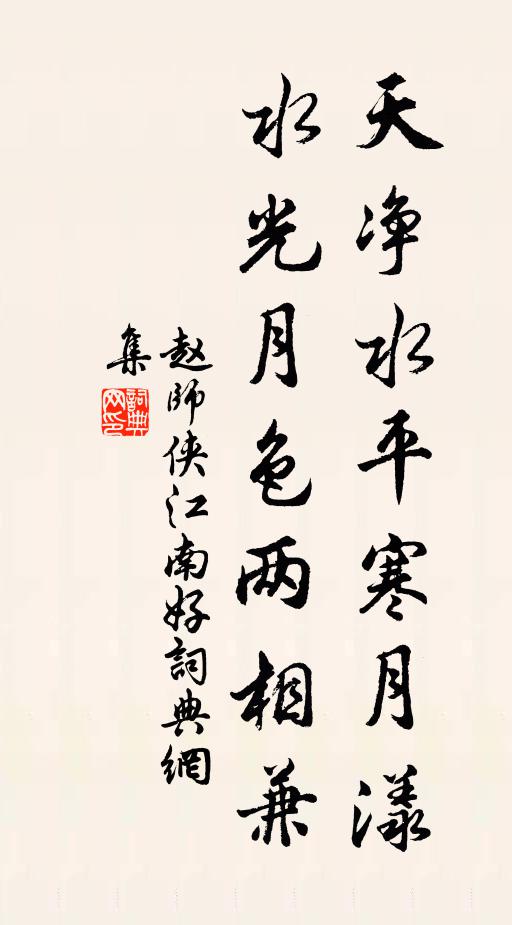 天净水平寒月漾
水光月色两相兼
赵師侠江南好詞典網
集
詞典网印